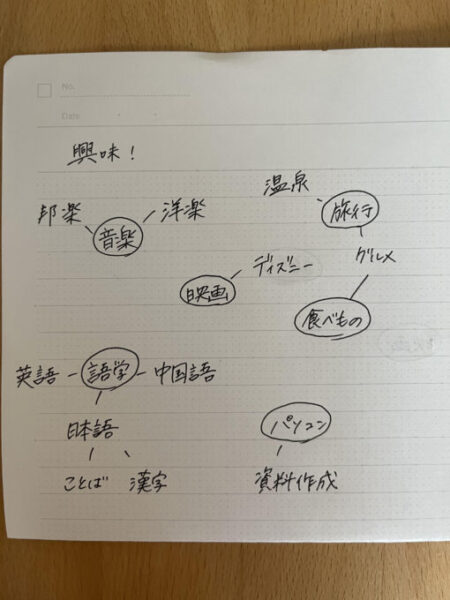 No.
Date
興味!
温泉
旅行
邦楽
洋楽
音楽
グルメ
ディズニー
映画
食べもの
英語 - 語学 - 中国語
日本語
パソコン
ことば 漢字
資料作成